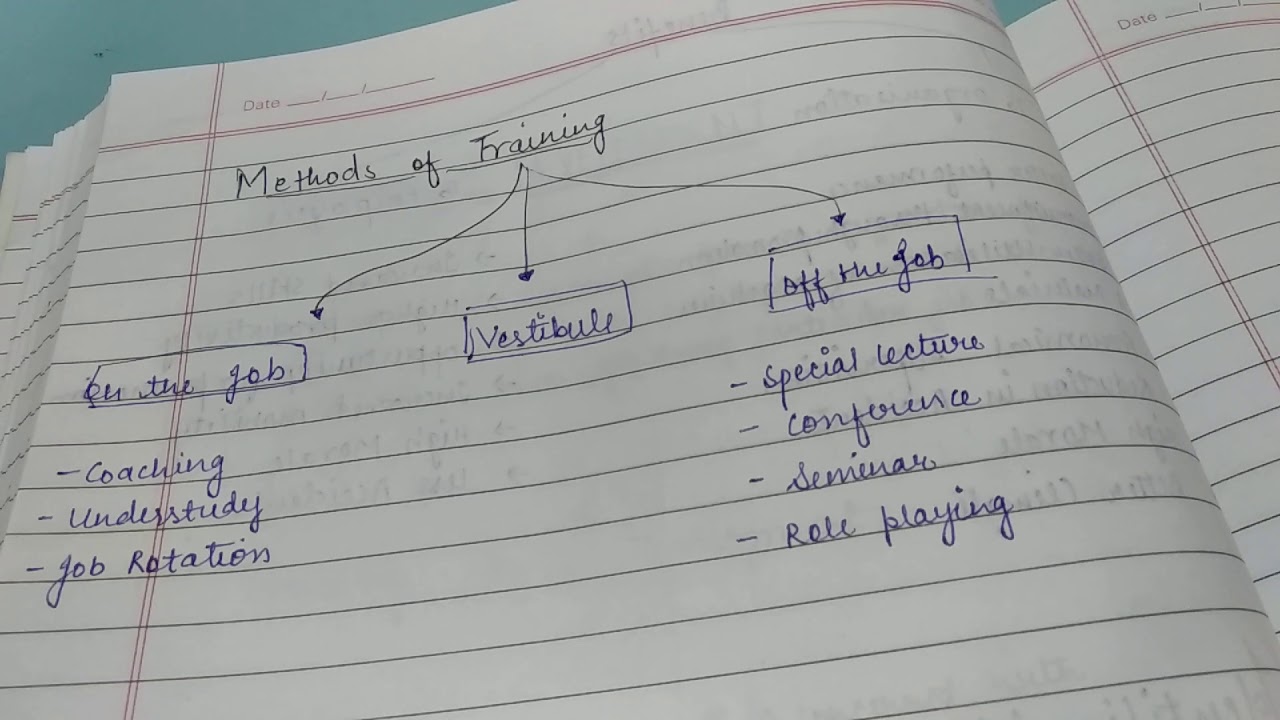 Date __/__/____
Date __/__/__
Methods of Training
On the job
Vestibule
Off the Job
- Coaching
- Understudy
- Job Rotation
- Special lecture
- Conference
- Seminar
- Role playing